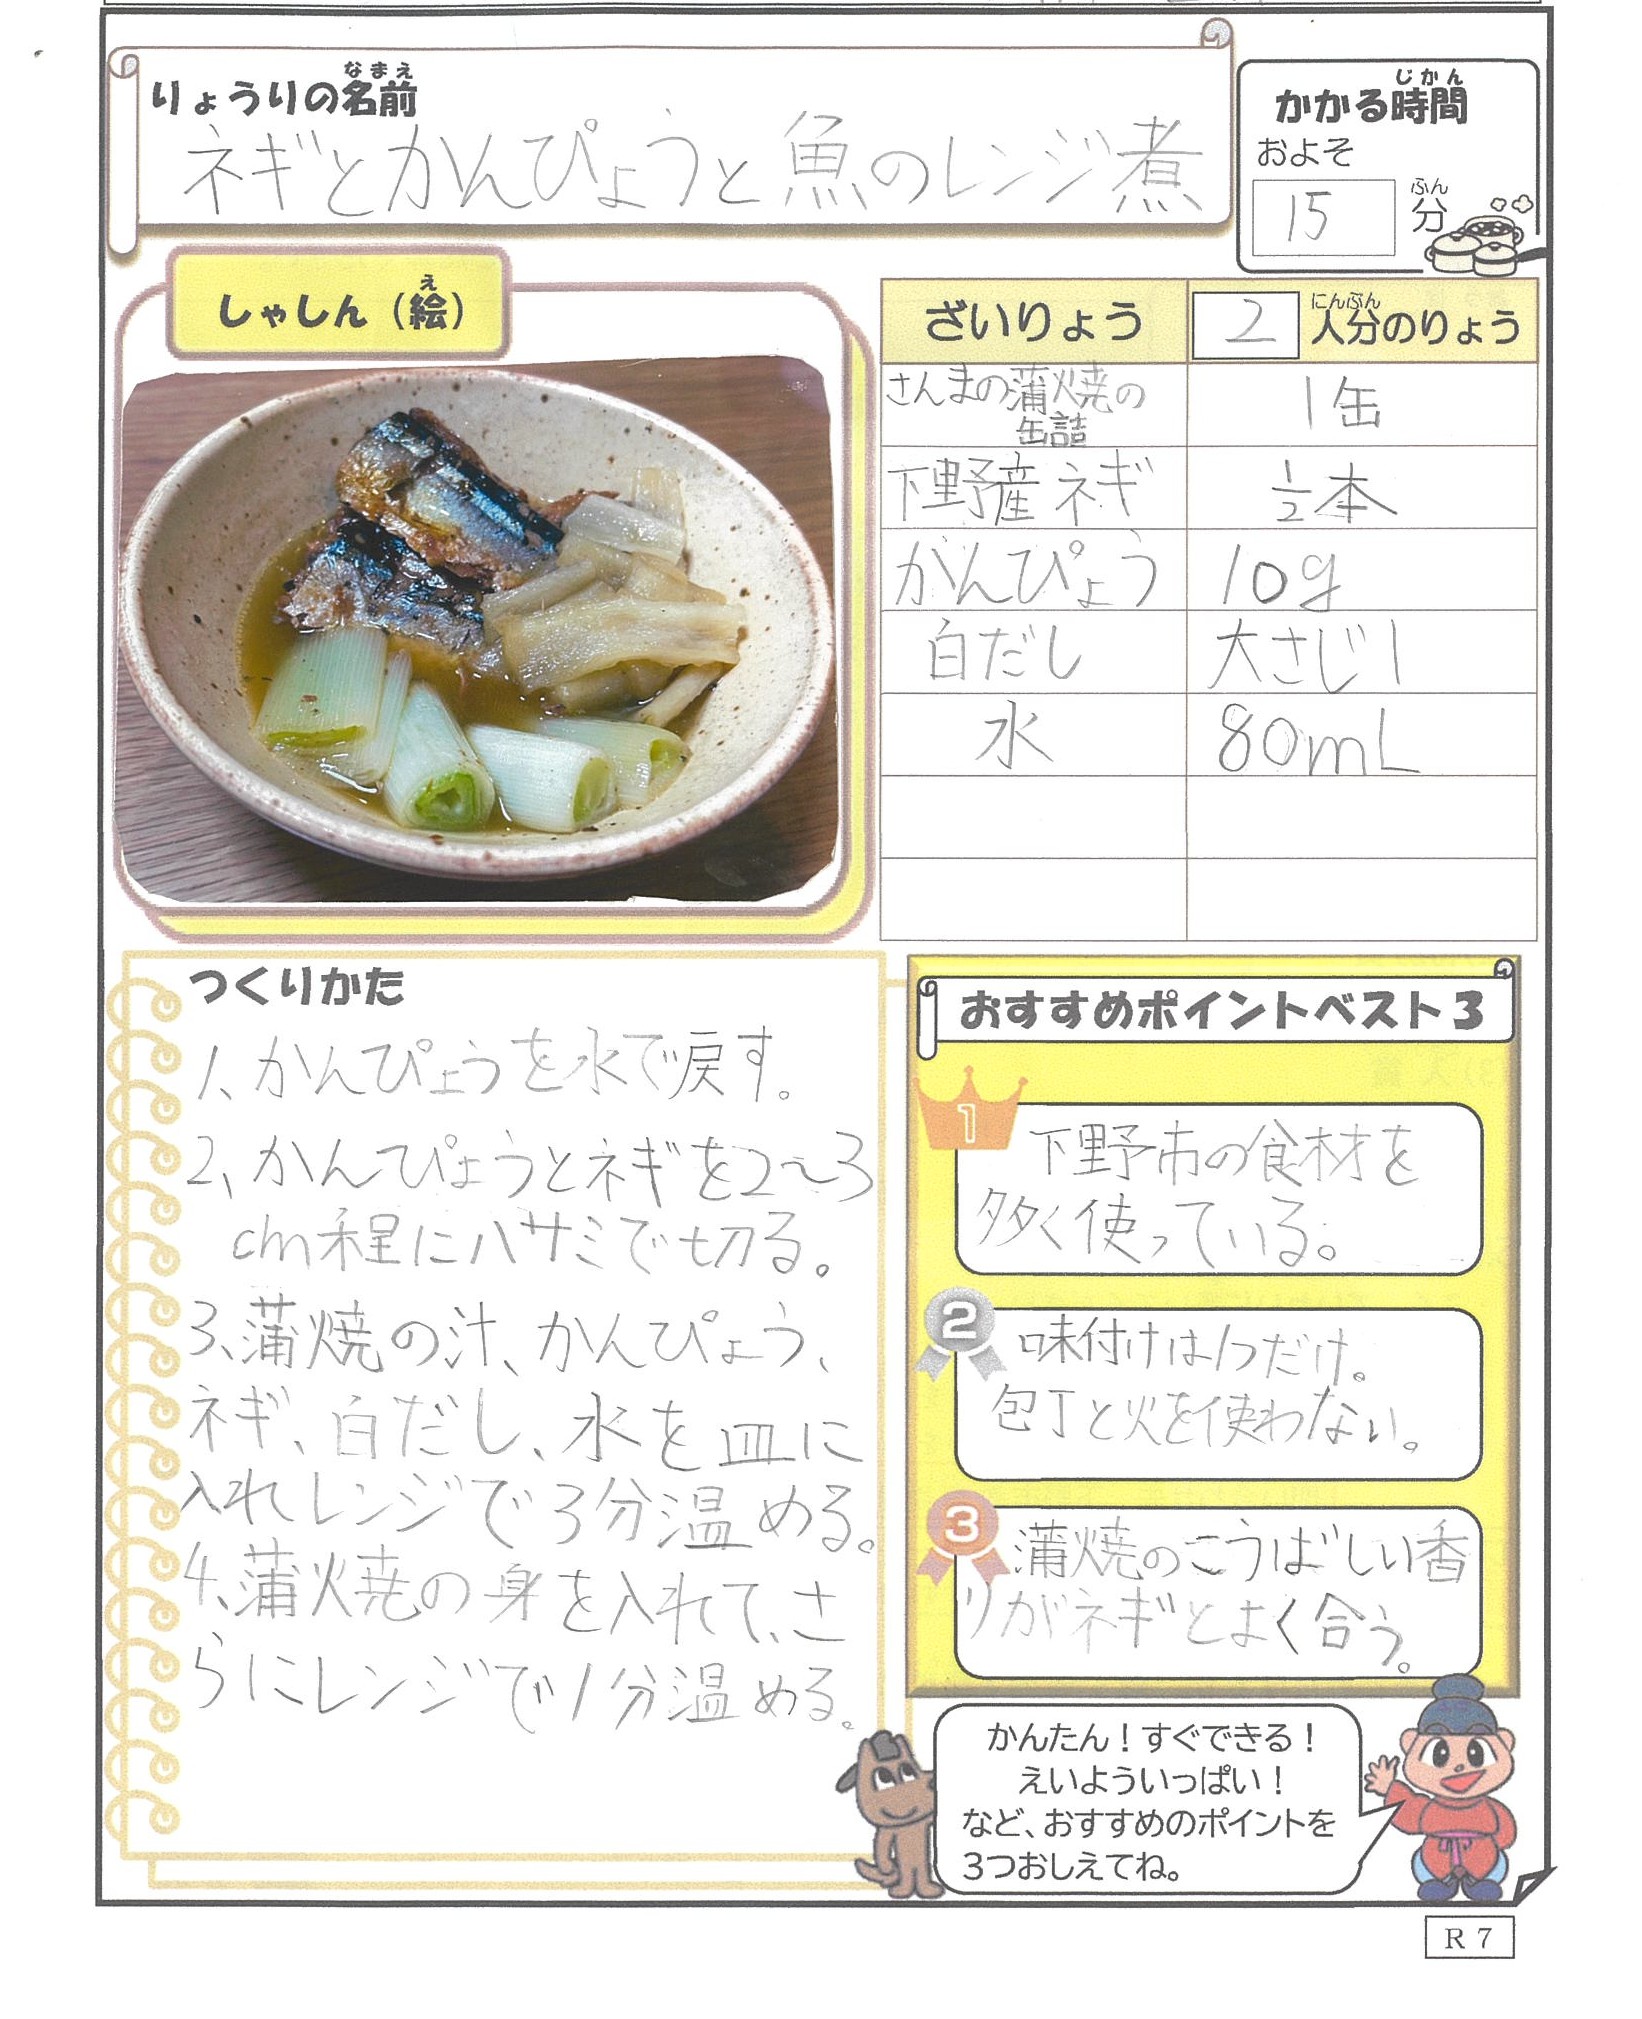 りょうりの名前
なまえ
ネギとかんぴょうと魚のレンジ煮
かかる時間
じかん
およそ
15
分
ふん
しゃしん（絵）
え
ざいりょう
2
人分のりょう
にんぶん
さんまの蒲焼の
缶詰
1缶
下野産ネギ
1/2本
かんぴょう
10g
白だし
大さじ1
水
80mL
つくりかた
1、かんぴょうを水で戻す。
2、かんぴょうとネギを2〜3
cm程にハサミで切る。
3、蒲焼の汁、かんぴょう、
ネギ、白だし、水を皿に
入れレンジで3分温める。
4、蒲焼の身を入れて、さ
らにレンジで1分温める。
おすすめポイントベスト3
1
下野市の食材を
多く使っている。
2
味付けは1つだけ。
包丁と火を使わない。
3
蒲焼のこうばしい香
りがネギとよく合う。
かんたん！すぐできる！
えいよういっぱい！
など、おすすめのポイントを
3つおしえてね。
R7